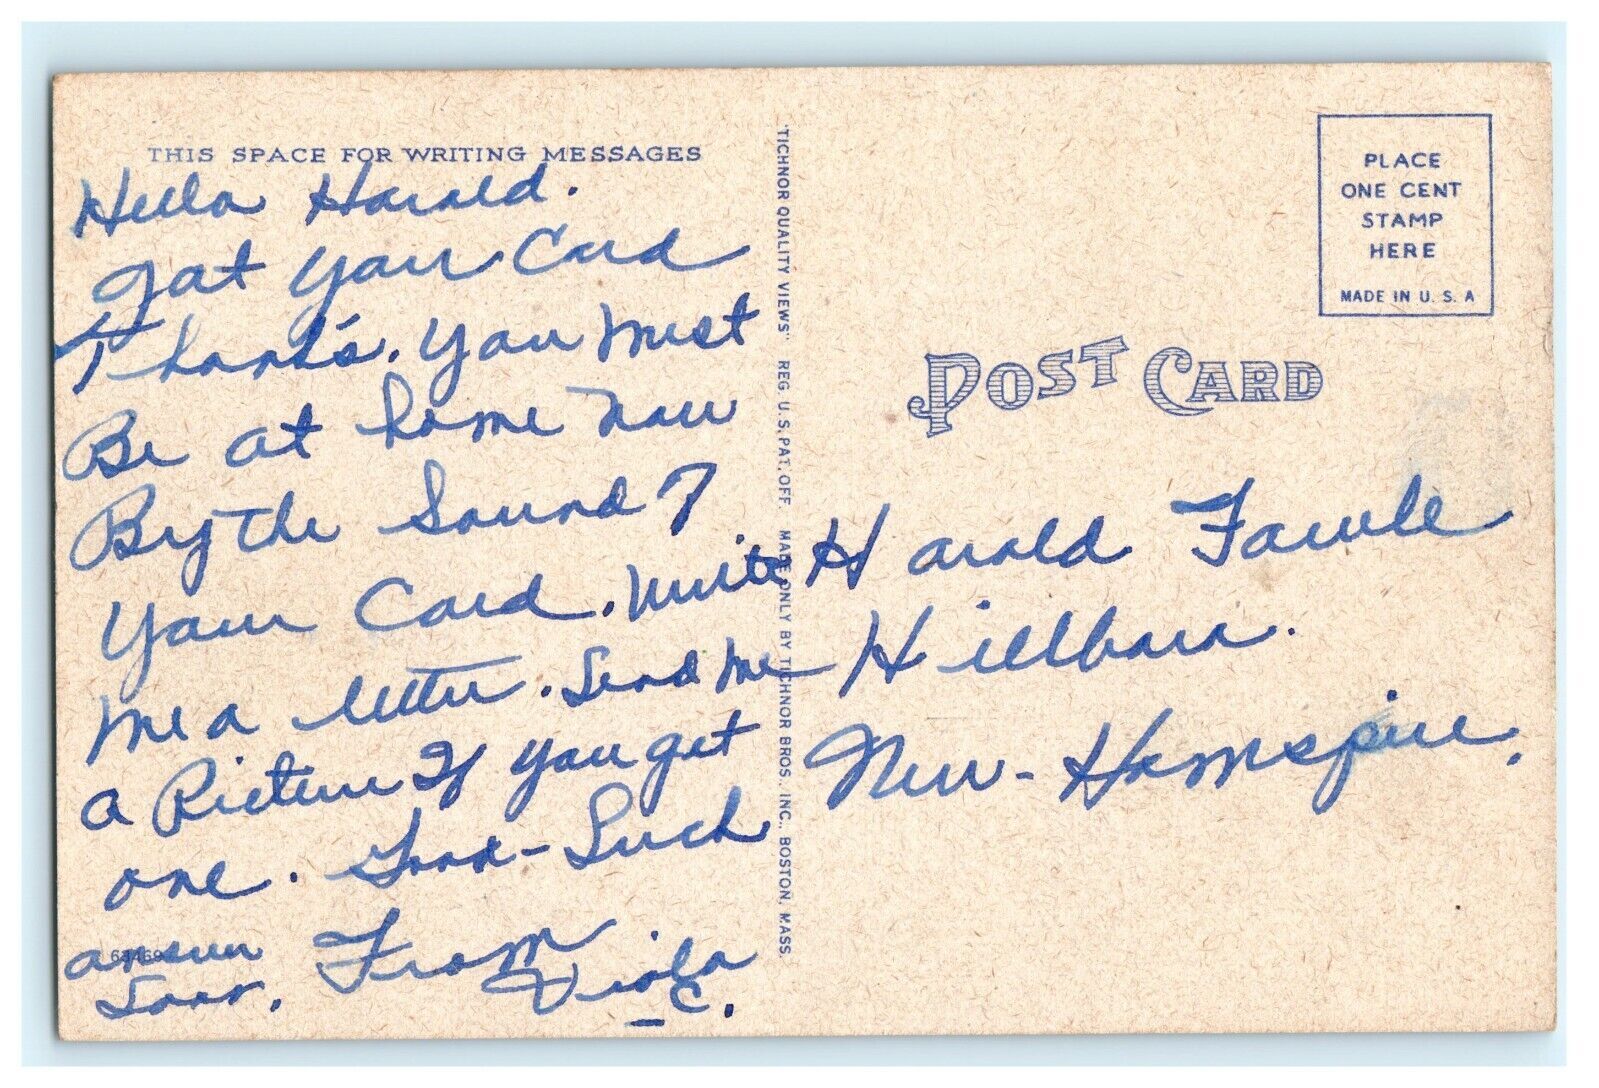 THIS SPACE FOR WRITING MESSAGES
Hello Harald.
got your Card
Thank's. You Must
Be at home now
By the Sound?
Your Card. write
me a letter. Send Me
a Picture If you get
one. Good-Luck
answer From Viola
Soon. C.
"TICHNOR QUALITY VIEWS" REG. U.S. PAT. OFF. MADE ONLY BY TICHNOR BROS. INC., BOSTON, MASS.
PLACE
ONE CENT
STAMP
HERE
MADE IN U. S. A
POST CARD
Harald
Hillboro.
New-Hamspire.